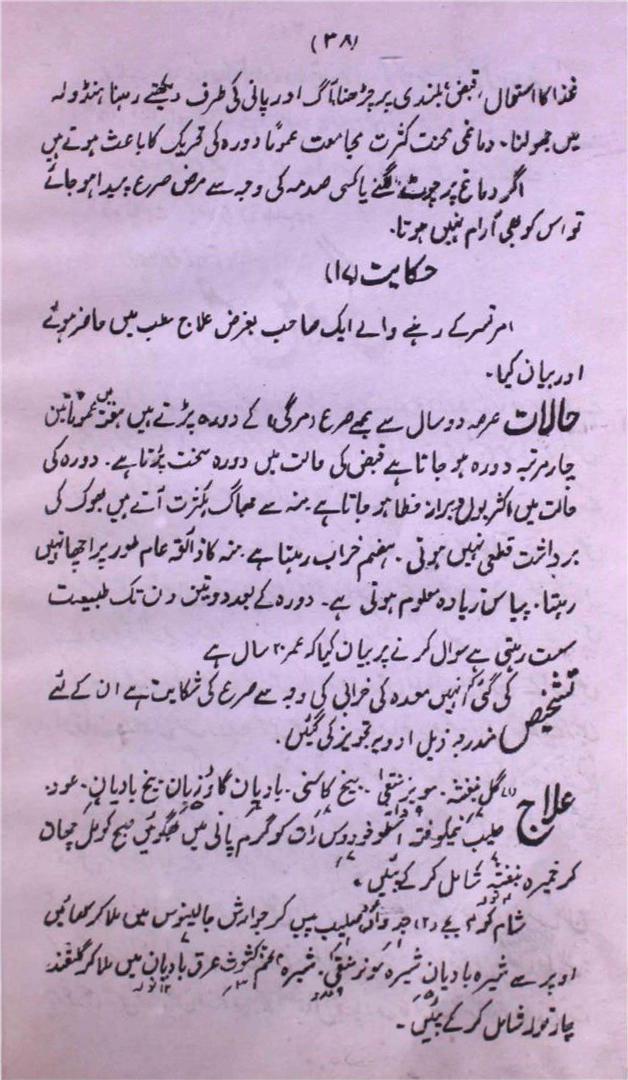 (۳۸)
غذا کا استعمال، قبض، بلندی پر چڑھنا، آگ اور پانی کی طرف دیکھتے رہنا ہنڈولہ
میں جھولنا۔ دماغی محنت کثرت مجامعت عموماً دورہ کی تحریک کا باعث ہوتے ہیں
اگر دماغ پر چوٹ لگنے یا کسی صدمہ کی وجہ سے مرض صرع پیدا ہو جائے
تو اس کو بھی آرام نہیں ہوتا۔
حکایت (۱۷)
امرتسر کے رہنے والے ایک صاحب بغرض علاج مطب میں حاضر ہوئے
اور بیان کیا۔
حالات عرصہ دو سال سے مجھے صرع (مرگی) کے دورہ پڑتے ہیں ہفتہ میں عموماً تین
چار مرتبہ دورہ ہو جاتا ہے قبض کی حالت میں دورہ سخت پڑتا ہے۔ دورہ کی
حالت میں اکثر بول و براز خطا ہو جاتا ہے منہ سے جھاگ بکثرت آتے ہیں بھوک کی
برداشت قطعی نہیں ہوتی۔ ہضم خراب رہتا ہے۔ منہ کا ذائقہ عام طور پر اچھا نہیں
رہتا۔ پیاس زیادہ معلوم ہوتی ہے۔ دورہ کے بعد دو تین دن تک طبیعت
سست رہتی ہے سوال کرنے پر بیان کیا کہ عمر ۲۰ سال ہے
تشخیص کی گئی کہ انہیں معدہ کی خرابی کی وجہ سے صرع کی شکایت ہے ان کے لئے
مندرجہ ذیل ادویہ تجویز کی گئیں۔
علاج (۱) گل بنفشہ۔ مویز منقیٰ۔ بیخ کاسنی۔ بادیان گاؤزبان۔ بیخ بادیان۔ عود
صلیب نیمکوفتہ اسطوخودوس رات کو گرم پانی میں بھگوئیں صبح کو مل چھان
کر خمیرہ بنفشہ شامل کر کے پئیں۔
شام کو ۴ بجے (۲) عود صلیب پیس کر جوارش جالینوس میں ملا کر کھائیں
اوپر سے شیرہ بادیان شیرہ مویز منقیٰ۔ شیرہ تخم کثوث عرق بادیان میں ملا کر گلقند
چار تولہ شامل کر کے پئیں۔